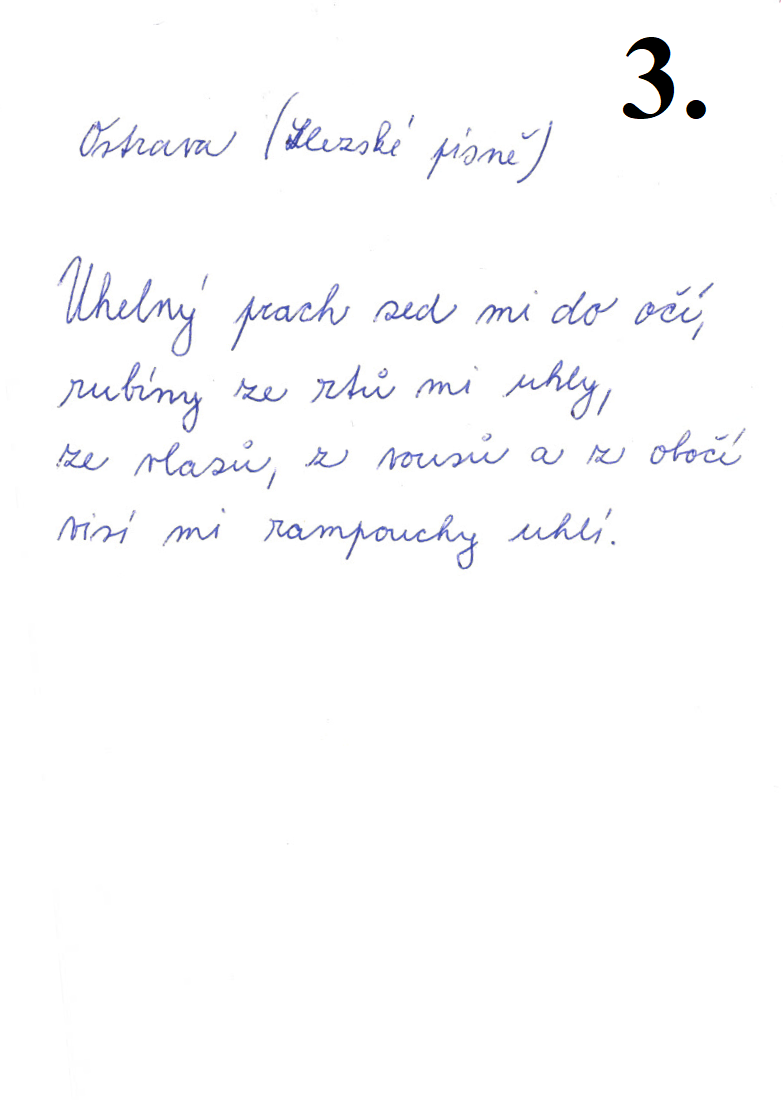 3.
Ostrava (Slezské písně)
Uhelný prach sed mi do očí,
rubíny ze rtů mi uhly,
ze vlasů, z vousů a z obočí
visí mi rampouchy uhlí.